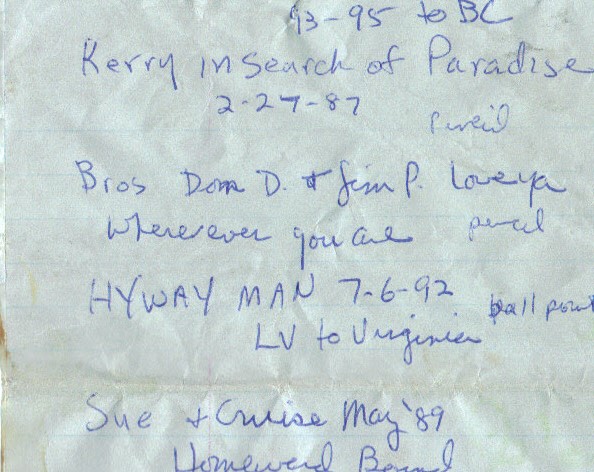 93-95 to BC
Kerry in Search of Paradise
2-27-87
pencil
Bros Dom D. + Jim P. Love ya
Wherever you are pencil
HYWAY MAN 7-6-92 ball point
LV to Virginia
Sue + Cruise May '89
Homeward Bound